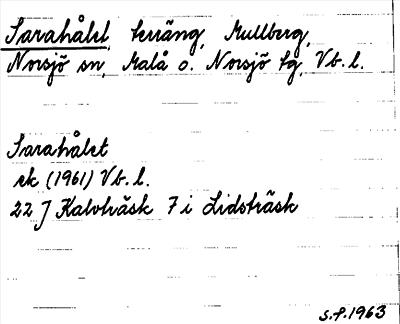 Sarahålet, terräng, Mullberg,
Norsjö sn, Malå o. Norsjö tg, Vb. l.
Sarahålet
ek (1961) Vb. l.
22 J Kalvträsk 7 i Lidsträsk
S.P. 1963